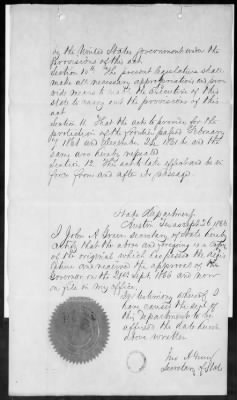 by the United States government under the
provisions of this act.
Section 10th The present Legislature shall
make all necessary appropriations and pro
vide means to the executive of this
state to carry out the provisions of this
act
Section 11. That the act to provide for the
protection of the frontier passed February
1861 and December 21st 1861 be and the
same are hereby repealed
Section 12. This act take effect and be in
force from and after its passage.
State Department
Austin Texas Sept 26 186
I John A Green secretary of state hereby
certify that the above and foregoing is a copy
of the original which has passed the Legis
lature and received the approval of the
Governor on the 21st Sept 1866 and now
on file in my office.
In testimony whereof I
have caused the seal of
this Department to be
affixed the date
above written
Jno A Green
Secretary of State